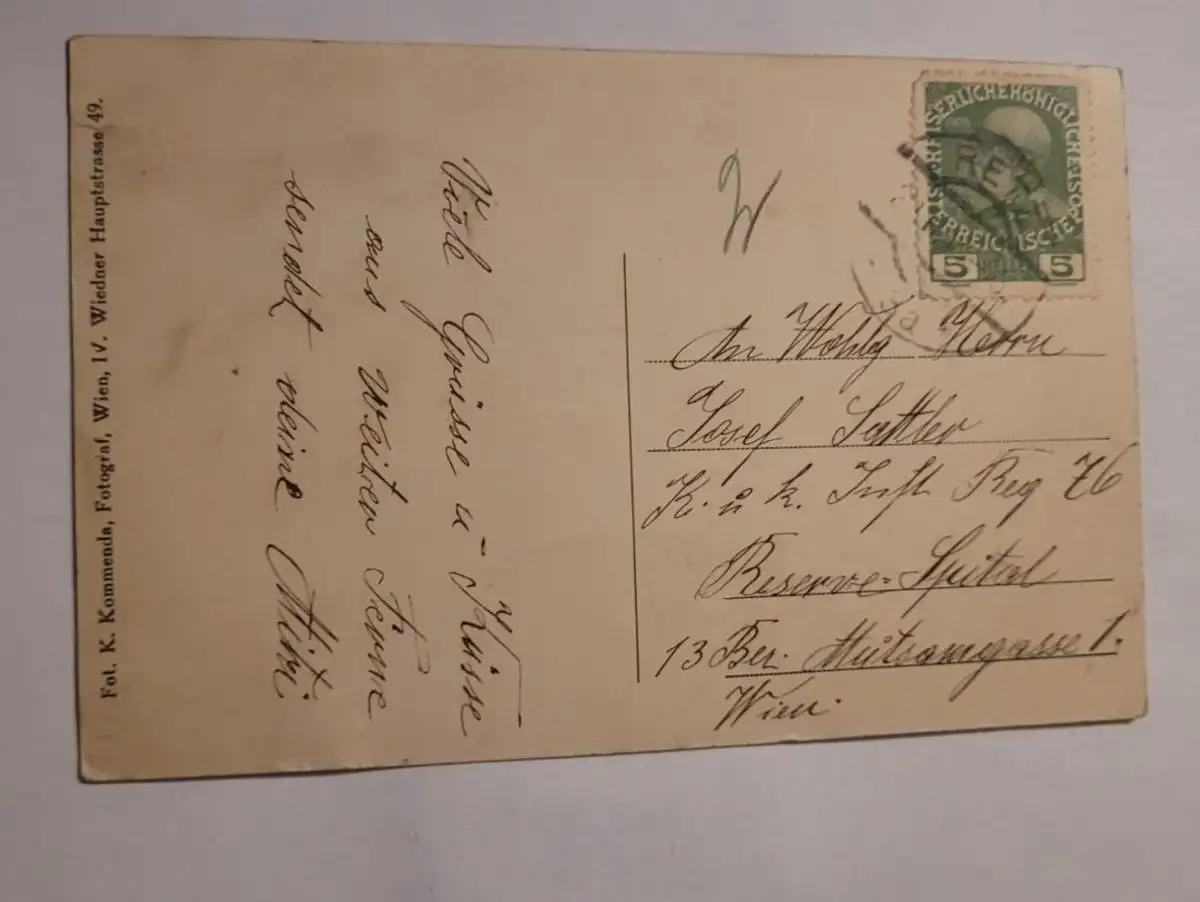 Fot. K. Kommenda, Fotograf, Wien, IV. Wiedner Hauptstrasse 49.
Viele Grüsse u Küsse
aus weiter Ferne
sendet deine Mitzi
W
KAISERLICHEKÖNIGLICHE
ÖSTERREICHISCHEPOST
5 HELLER 5
An Wohlg Herrn
Josef Sattler
K. u k. Inft Reg 76
Reserve-Spital
13 Bez. Hütsamgasse 1.
Wien.